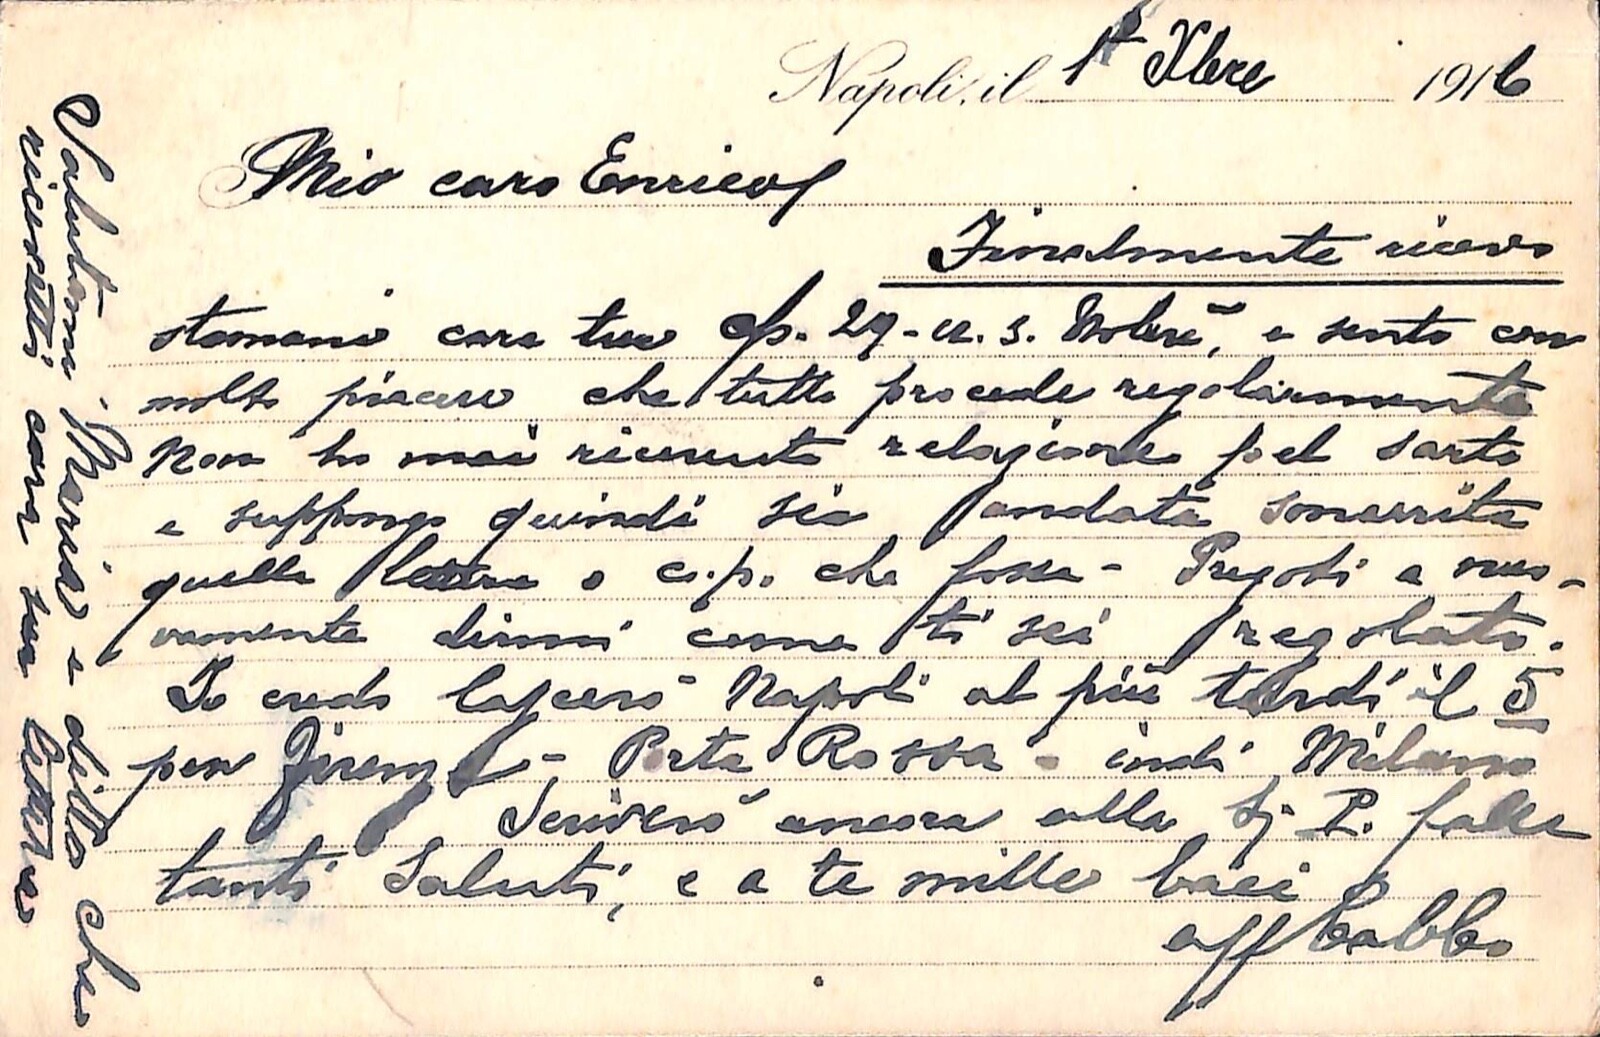 Napoli, il 1° Xbre 1916
Mio caro Enrico
Finalmente ricevo
stamane cara tua 29 - u. s. Nobre, e sento con
molto piacere che tutto procede regolarmente
Non ho mai ricevuto relazione pel sarto
e suppongo quindi sia andata smarrita
quella lettera o c.p. che fosse - Pregoti a nuo-
vamente dirmi come ti sei regolato.
Io credo lascerò Napoli al più tardi il 5
per Firenze - Porta Rossa - indi Milano
Scriverò ancora alla Sig P. falle
tanti saluti, e a te mille baci
aff babbo
Salutami Maria e dille che
ricevetti cara sua lettera